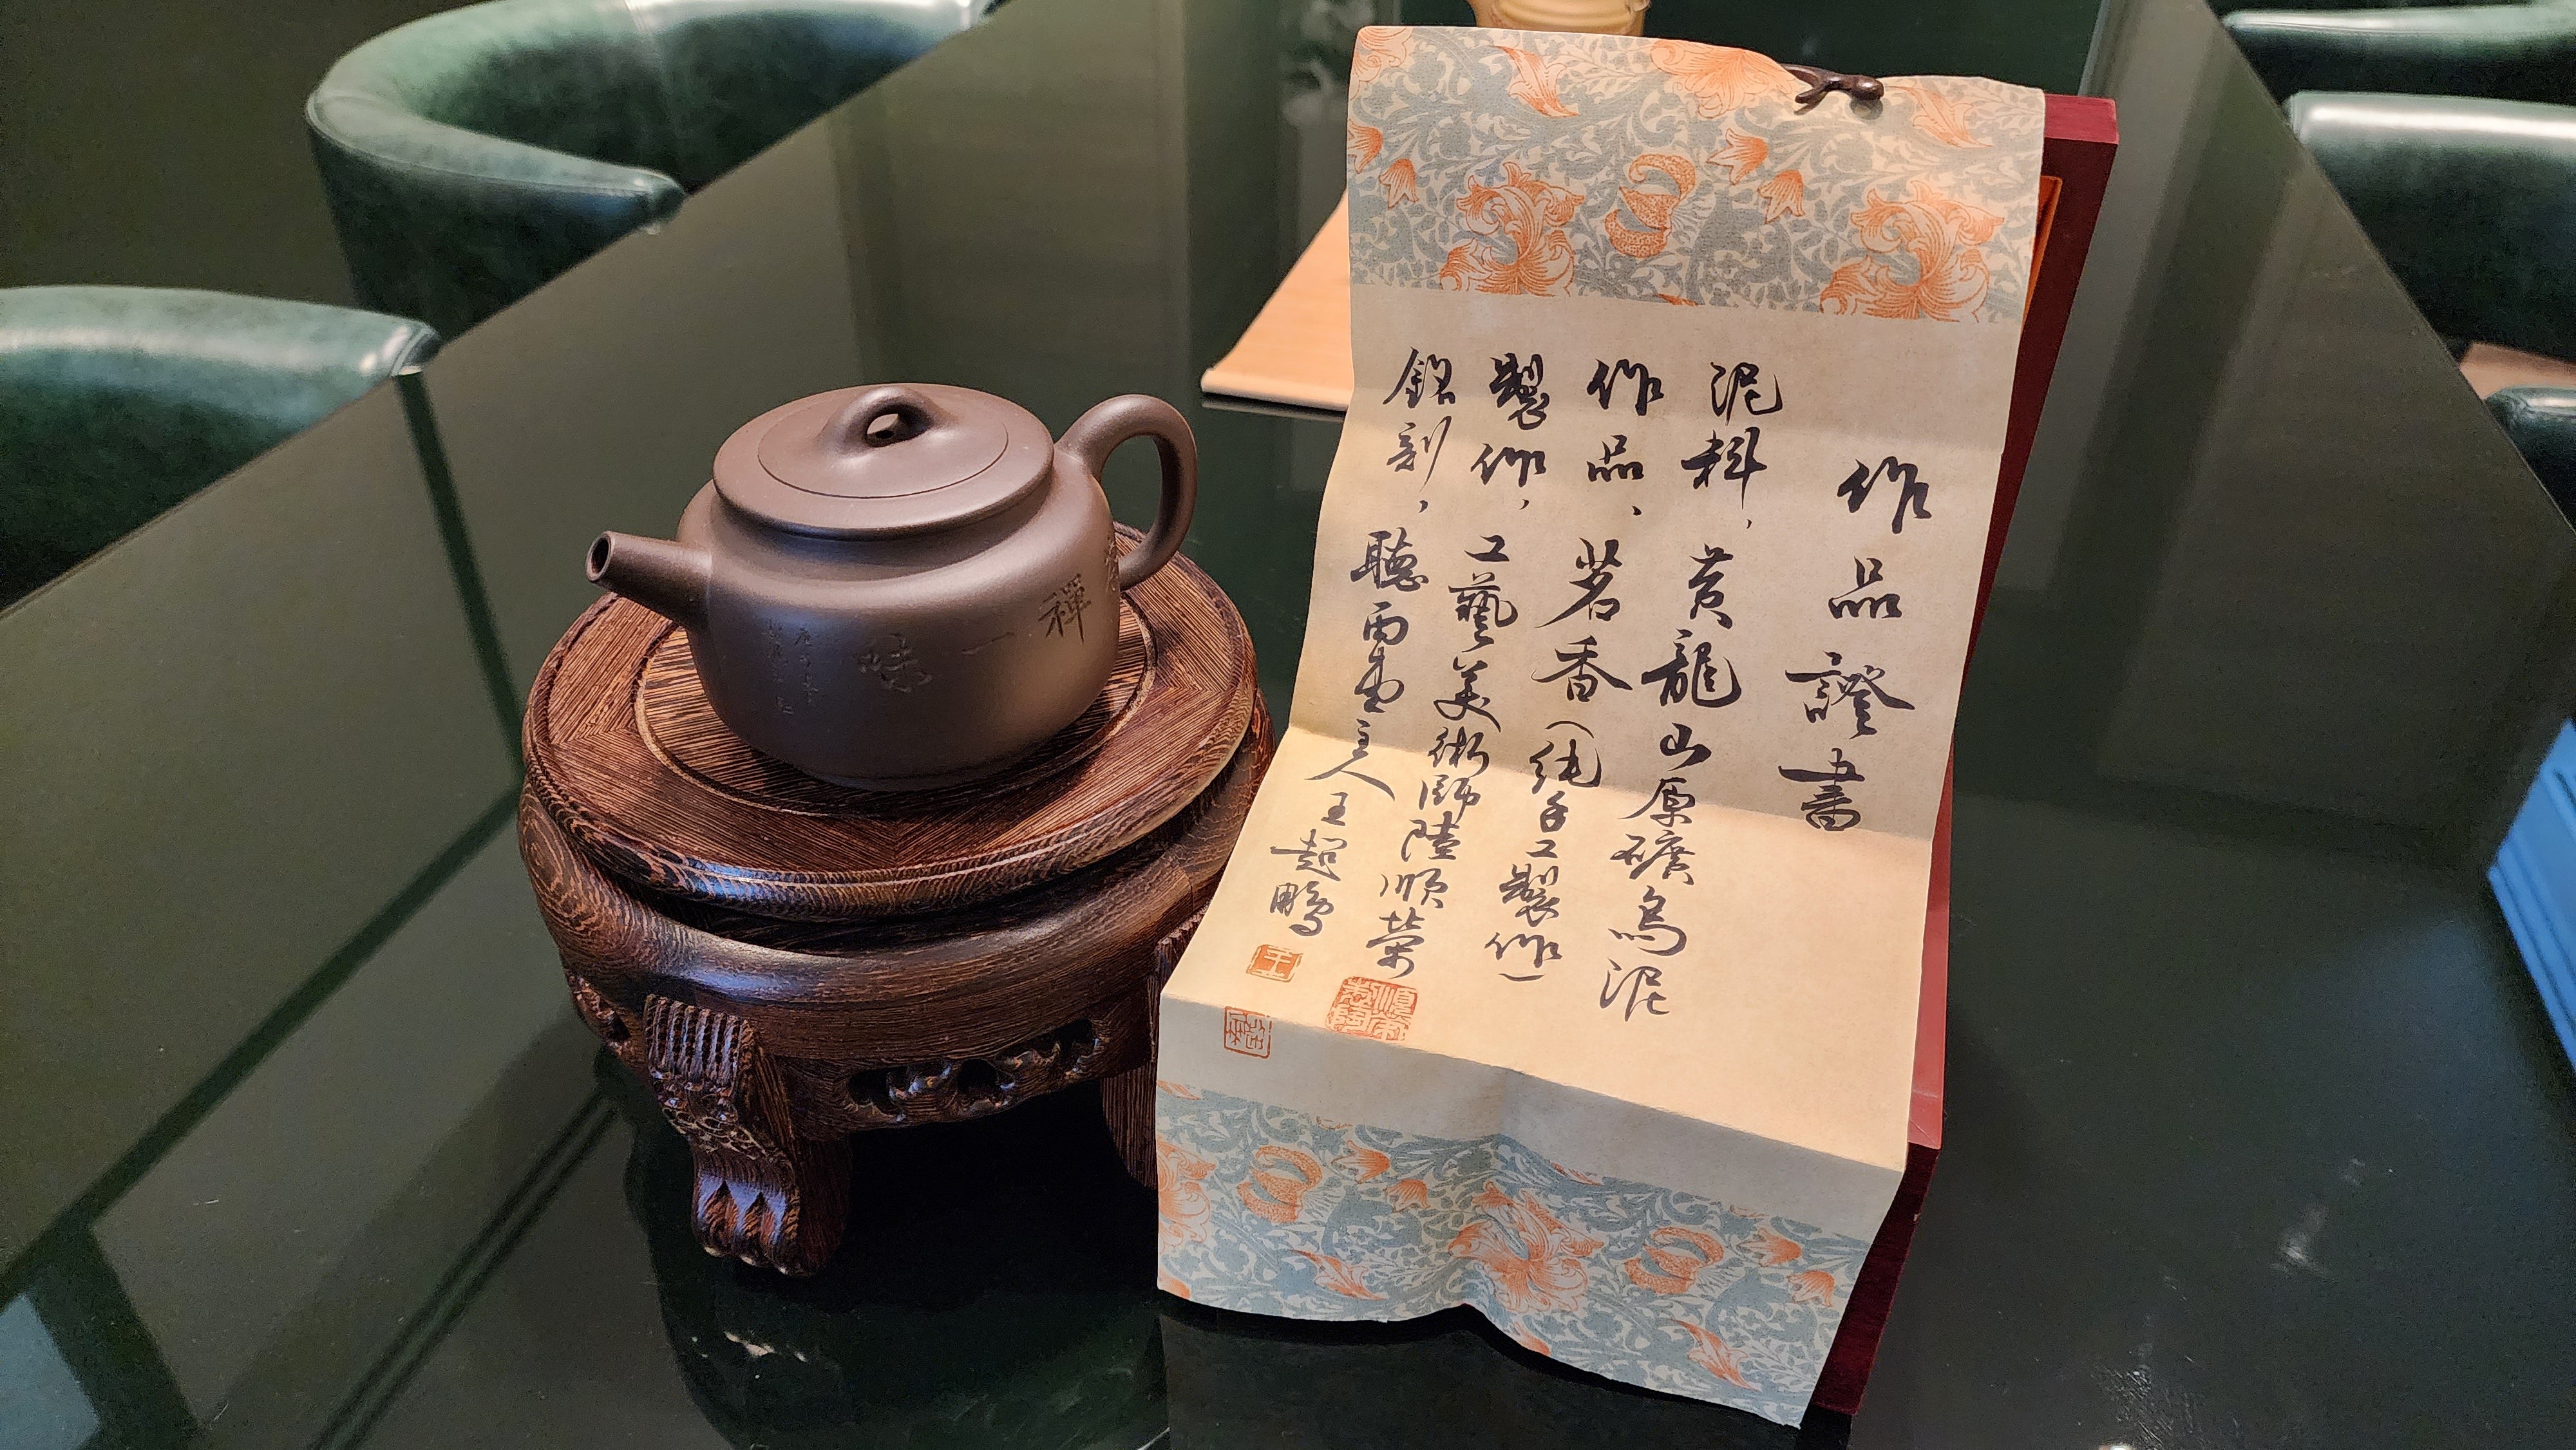 作品證書
泥料，黃龍山原礦烏泥
作品、茗香（純手工製作）
製作，工藝美術師陸順榮
銘刻，聽雨堂主人王超鵬
王
禪一味